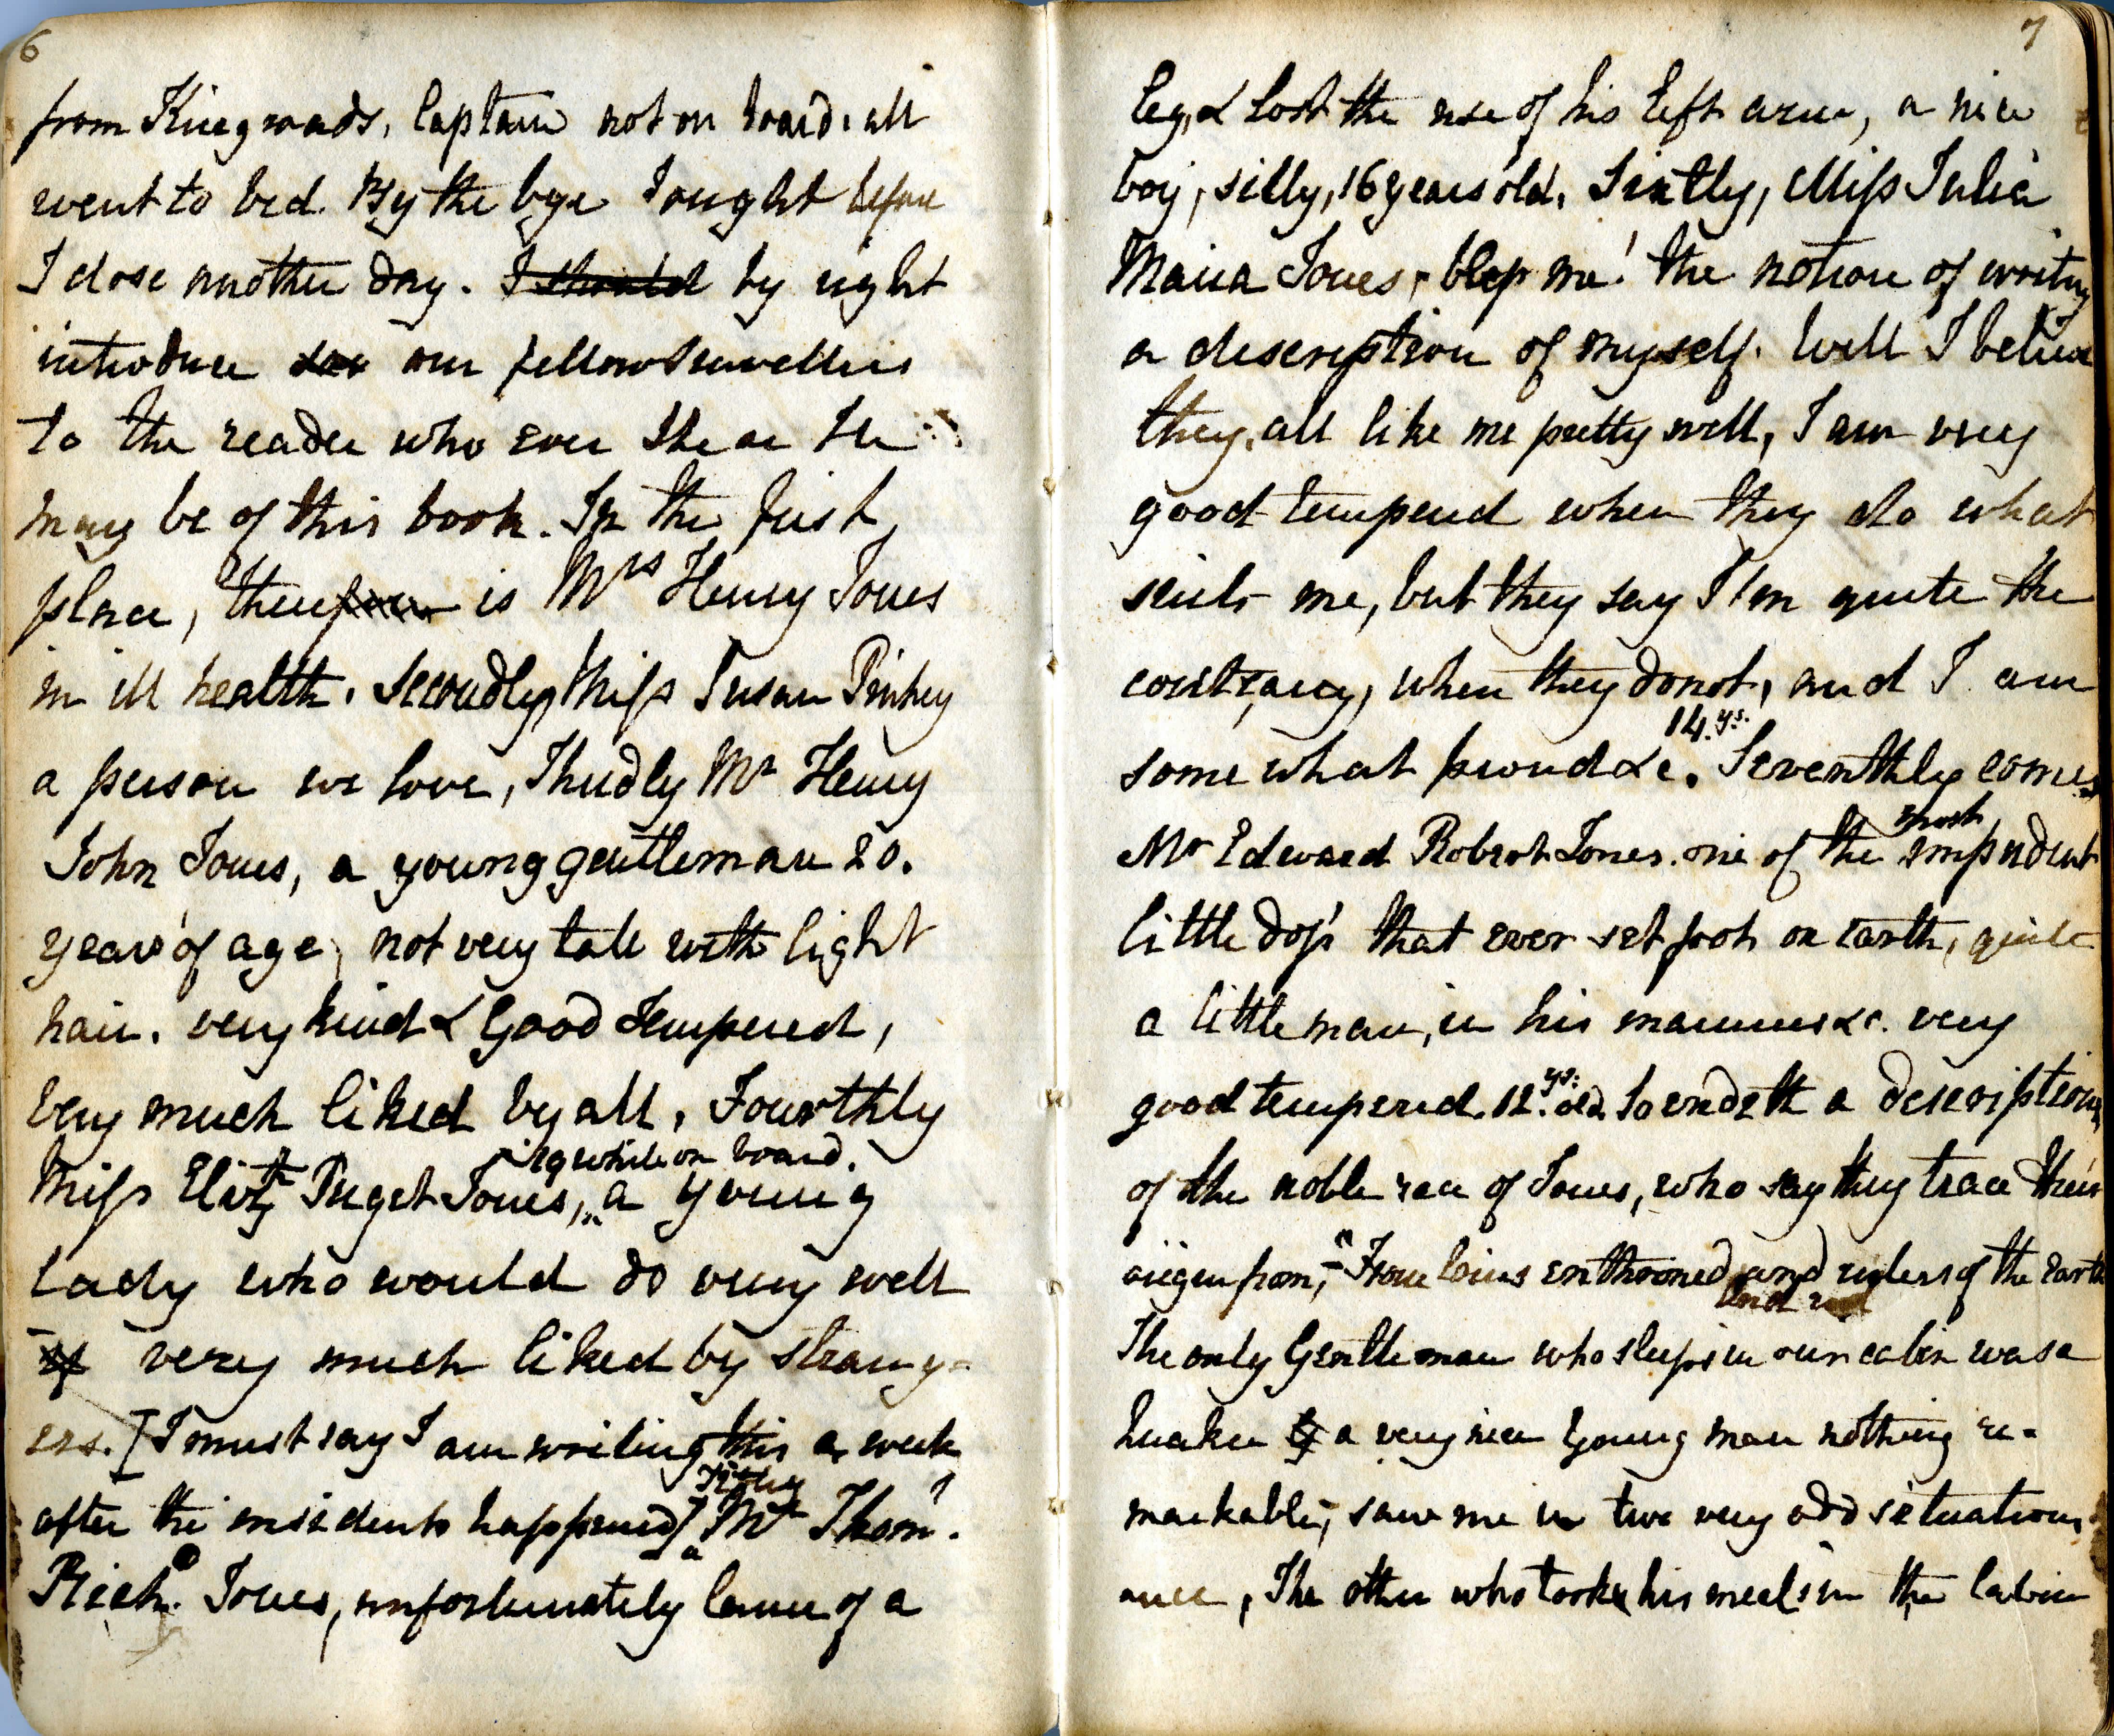 6
from King roads, Captain not on board. all
went to bed. By the bye I ought before
I close another day. I should by right
introduce our fellow travellers
to the reader who ever She or He
may be of this book. In the first
place, therefore is Mrs Henry Jones
in ill health. Secondly, Miss Susan Pinkey
a person we love, Thirdly Mr Henry
John Jones, a young gentleman 20.
years of age, not very tall with light
hair. very kind & Good Tempered,
very much liked by all, Fourthly
19 while on board.
Miss Elizth Puget Jones, a young
lady who would do very well
if very much liked by strang-
ers. [I must say I am writing this a week
Fifthly
after the insidents happened] Mr Thom.
Richd. Jones, unfortunately lame of a
7
leg, & lost the use of his left arm, a nice
boy, silly, 16 years old. Sixtly, Miss Julia
Maria Jones, bless me! the notion of writing
a description of myself. Well I believe
they, all like me pretty well, I am very
good tempered when they do what
suits me, but they say I'm quite the
contrary, when they do not, and I am
14. ys.
some what proud &c. Seventhly comes
most
Mr Edward Robert Jones. one of the impudent
little dogs that ever set foot on Earth, quite
a little man, in his manners &c. very
good tempered. 12 ys: old So endeth a description
of the noble race of Jones, who say they trace their
origen from, "From loins enthroned and rulers of the Earth
and
The only Gentleman who sleeps in our cabin was a
Quaker a very nice young man nothing re-
markable, saw me in two very odd situations
once, The other who took his meals in the Cabin